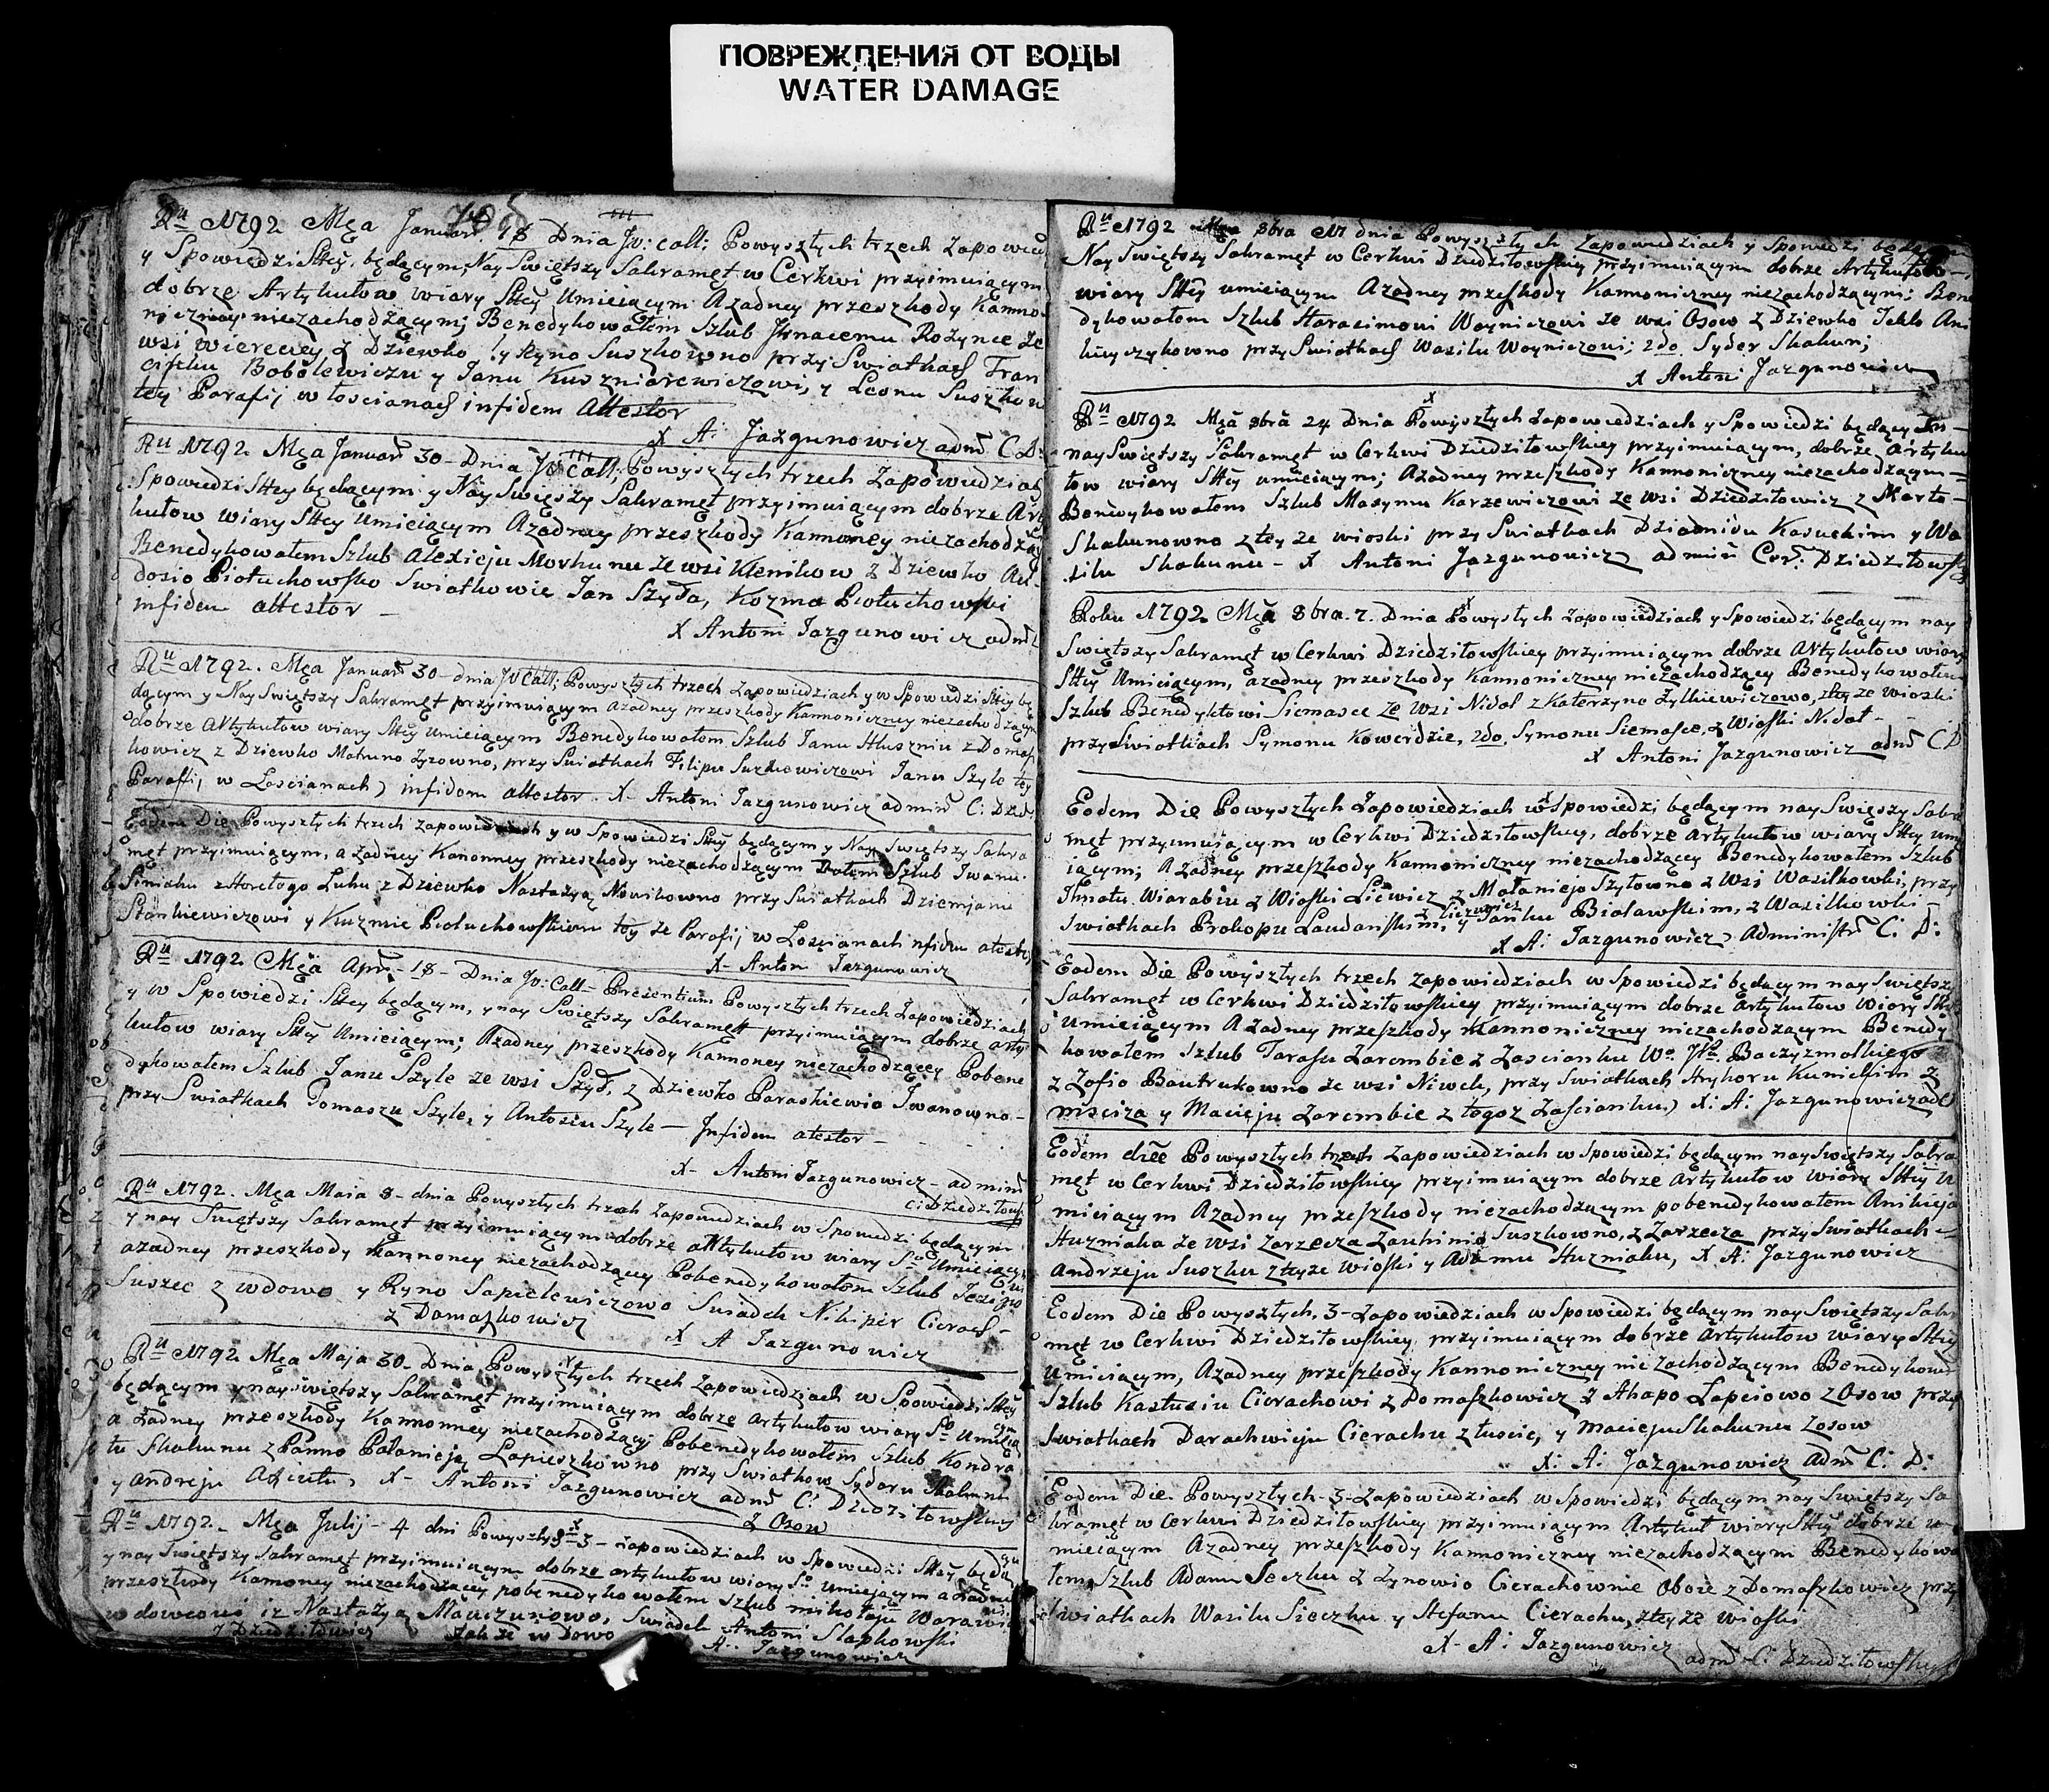 ПОВРЕЖДЕНИЯ ОТ ВОДЫ
WATER DAMAGE
Ru 1792 Mca Januar 18 Dnia Powyszłych trzech Zapowied
y Spowiedzi Sttey będącym, Nay Swiętszy Sakramęt w Cerkwi przyimuiącym
dobrze Artykułow wiary Sttey Umieiącym Azadney przeszkody Kanno
niczney niezachodzącym; Benedykowałem Szlub Jhnacemu Rożynce ze
wsi Wiereciey z Dziewko Suszkowno przy Swiatkach Fran
ciszku Bobolewiczu y Janu Kuszniarewiczowi, y Leonu Suszkow
tey Parafij włoscianach infidem Attestor
X A: Jazgunowicz adm C D:
Ru 1792 Mca Januar 30 Dnia Powyszłych trzech Zapowiedziach
Spowiedzi Sttey będącym y Nay Swięszy Sakramęt przyimuiącym dobrze Arty
kułow wiary Sttey Umieiącym Azadney przeszkody Kannoney niezachodzący
Benedykowałem Szlub Alexieju Morhunu ze wsi Klenikow z Dziewko Au-
dosio Piotuchowsko Swiatkowie Jan Szyła, Kozma Piotuchowski
infidem attestor –
X Antoni Jazgunowicz adm
Ru 1792. Mca Januar 30 - dnia Powyszłych trzech Zapowiedziach y w Spowiedzi Sttey bę
dącym y Nay Swiętszy Sakramęt przyimuiącym azadney przeszkody Kannoniczney niezachodzącym
dobrze Artykułow wiary Sttey umieiącym Benedykowałem Szlub Janu Hłuszniu z Domasz
kowicz z Dziewko Matruno Zyzowno, przy Swiatkach Filipu Suzkiewiczowi Janu Szyle tey
Paraffij w Łoscianach infidem attestor. X- Antoni Jazgunowicz admin C: Dzied
Eodem Die Powyszłych trzech zapowiedziach y w Spowiedzi Sttey będącym y Nay Swiętszy Sakra
męt przyimuiącym, azadney Kanonney przeszkody niezachodzącym Dałem Szlub Iwanu
Siniaku z Horełogo Łuhu z Dziewko Nastazyą Nowikowno przy Swiatkach Dziemjanu
Stankiewiczowi y Kuzmie Piotuchowskiem tey ze Parafij w Łoscianach nfidem atestor
X- Anton Jazgunowicz
Ru 1792 Mca Apr. - 18 - Dnia Prezentium Powyszłych trzech Zapowiedziach
y w Spowiedzi Sttey będącym, y nay Swiętszy Sakramęt przyimuiącym dobrze arty
kułow wiary Sttey Umieiącym; Azadney przeszkody Kannoney niezachodzącey Pobene
dykowałem Szlub Janu Szyle ze wsi Szył, z Dziewko Paraskiewio Iwanowno-
przy Swiatkach Tomaszu Szyle, y Antosiu Szyle – Infidem atestor –
X- Antoni Jazgunowicz - admin
C: Dziedziłow
Ru 1792. Mca Maia 8 - dnia Powyszłych trzech Zapowiedziach w Spowiedzi będącym
y nay Swiętszy Sakramęt przyimuiącym dobrze artykułow wiary S. Umieiącym
azadney przeszkody Kannoney niezachodzący Pobenedykowałem Szlub
Suszec z wdowo y Ryno Sapielewiczowo Swiadek Nikipir Cierach-
z Domaszkowicz X A Jazgunowicz
Ru 1792 Mca Maja 30 - Dnia Powyszłych trzech Zapowiedziach w Spowiedzi Sttey
będącym y nay swiętszy Sakramęt przyimuiącym dobrze artykułow wiary S. Umieią
a żadney przeszkody Kannonney niezachodzący Pobenedykowałem Szlub Kondra
tu Skakunu z Panno Połanieją Łapieszkowno przy Swiatkow Sydoru Skakunu
y andreju X- Antoni Jazgunowicz adm C: Dziedziłowskiey
z Osow
Ru 1792 - Mca Julij - 4 dni Powyszłych 3 - zapowiedziach w Spowiedzi Sttey będą
y nay Swiętszy Sakramęt przyimuiącym dobrze artykułow wiary S. umiejącym azadney
przeszkody Kannoney niezachodzącey pobenedykowałem Szlub mikołaju Worawi
wdowcowi iz Nastazyą Mauczunowo, Swiadek Antoni Słapkowski
z Dziedziłowicz także wdowo A: Jazgunowicz
Ru 1792 Mca 8bra 17 dnia Powyszłych Zapowiedziach y Spowiedzi będącym
Nay Swiętszy Sakramęt w Cerkwi Dziedziłowskiey przyimuiącym dobrze Artykułow
wiary Sttey umieiącym Azadney przeszkody Kannoniczney niezachodzącym; Bene
dykowałem Szlub Harasimowi Woyniczowi ze wsi Osow z Dziewko Teklo Ani
kieyczykowno przy Swiatkach Wasilu Woyniczowi; 2do Syder Skakun;
X Antoni Jazgunowicz
Ru 1792 Mca 8bra 24 Dnia Powyszłych Zapowiedziach y Spowiedzi będącym
naySwiętszy Sakramęt w Cerkwi Dziedziłowskiey przyimuiącym, dobrze Artyku
łow wiary Sttey umieiącym; Azadney przeszkody Kannoniczney niezachodzącym
Benedykowałem Szlub Maxymu Karzewiczowi ze wsi Dziedziłowicz z Marto-
Skakunowno z tey ze wioski przy Swiatkach Dziamidu Kasuckim y Wa
silu Skakunu - X Antoni Jazgunowicz admin Cer: Dziedziłowskiey
Roku 1792 Mca 8bra. 7. Dnia Powyszłych Zapowiedziach y Spowiedzi będącym nay
Swiętszy Sakramęt w Cerkwi Dziedziłowskiey przyimuiącym dobrze Artykułow wiary
Sttey Umieiącym, azadney przeszkody Kannoniczney niezachodzący Benedykowałem
Szlub Benedyktowi Siemasce ze wsi Nidal z Katerzyno Zylkiewiczowo, ztey ze wioski
przy Swiatkach Symonu Kowerdzie, 2do. Symonu Siemasce, z Wioski Nidal -
X Antoni Jazgunowicz adm C D
Eodem Die Powyszłych Zapowiedziach w Spowiedzi będącym nay Swięszy Sakra
męt przyimuiącym w Cerkwi Dziedziłowskiey, dobrze artykułow wiary Sttey umi
iącym; Azadney przeszkody Kannoniczney niezachodzącey Benedykowałem Szlub
Ihnatu Wiarabiu z Wioski Liewicz z Małaniejo Szyłowno z Wsi Wasilkowki, przy
Swiatkach Prokopu Laudanskim, y Janku Białawskim, z Wasilkowki
X A: Jazgunowicz Administr C: D:
Eodem Die Powyszłych trzech Zapowiedziach w Spowiedzi będącym nay Swiętszy
Sakramęt w Cerkwi Dziedziłowskiey przyimuiącym dobrze Artykułow Wiary Stt
Umieiącym Azadney przeszkody Kannoniczney niezachodzącym Benedy
kowałem Szlub Tarasu Zarembie z Zascianku Baczyzmalkiego
z Zofio Bautrukowno ze wsi Niwek, przy Swiatkach Hryhoru Kunickim z
msciza y Macieju Zarembie z tegoz Zascianku) X: A: Jazgunowicz ad C
Eodem diee Powyszłych trzech Zapowiedziach w Spowiedzi będącym nay Swiętszy Sakra
męt w Cerkwi Dziedziłowskiey przyimuiącym dobrze artykułow wiary Sttey U
mieiącym Azadney przeszkody niezachodzącym pobenedykowałem Anikieja
Huzniaka ze wsi Zarzecza Suszkowno, z Zarzecza przy Swiatkach -
Andrzeju Suszku ztey ze wioski y Adamu Huzniaku, X A: Jazgunowicz
Eodem Die Powyszłych, 3 - Zapowiedziach w Spowiedzi będącym nay Swiętszy Sakr
męt w Cerkwi Dziedziłowskiey, przyimuiącym dobrze artykułow wiary Sttey
Umieiącym, Azadney przeszkody Kannoniczney niezachodzącym Benedykował
Szlub Kastusiu Cierachowi z Domaszkowicz z Ahapo Łapciowo z Osow przy
Swiatkach Darachwieju Cierachu z łuscic, y Macieju Skakunu z osow
X: A: Jazgunowicz adm C: D:
Eodem Die. Powyszłych - 3 - Zapowiedziach w Spowiedzi będącym nay Swiętszy Sa
kramęt w Cerkwi Dziedziłowskiey przyimuiącym Artykuł wiary Sttey dobrze u-
mieiącym Azadney przeszkody Kannoniczney niezachodzącym Benedykowa
łem, Szlub Adamu Seczku z Zynowio Cierachownie oboie z Domaszkowicz przy
Swiatkach Wasilu Sieczku y Stefanu Cierachu, ztey ze wioski
X- A: Jazgunowicz adm C: Dziedziłowskiey